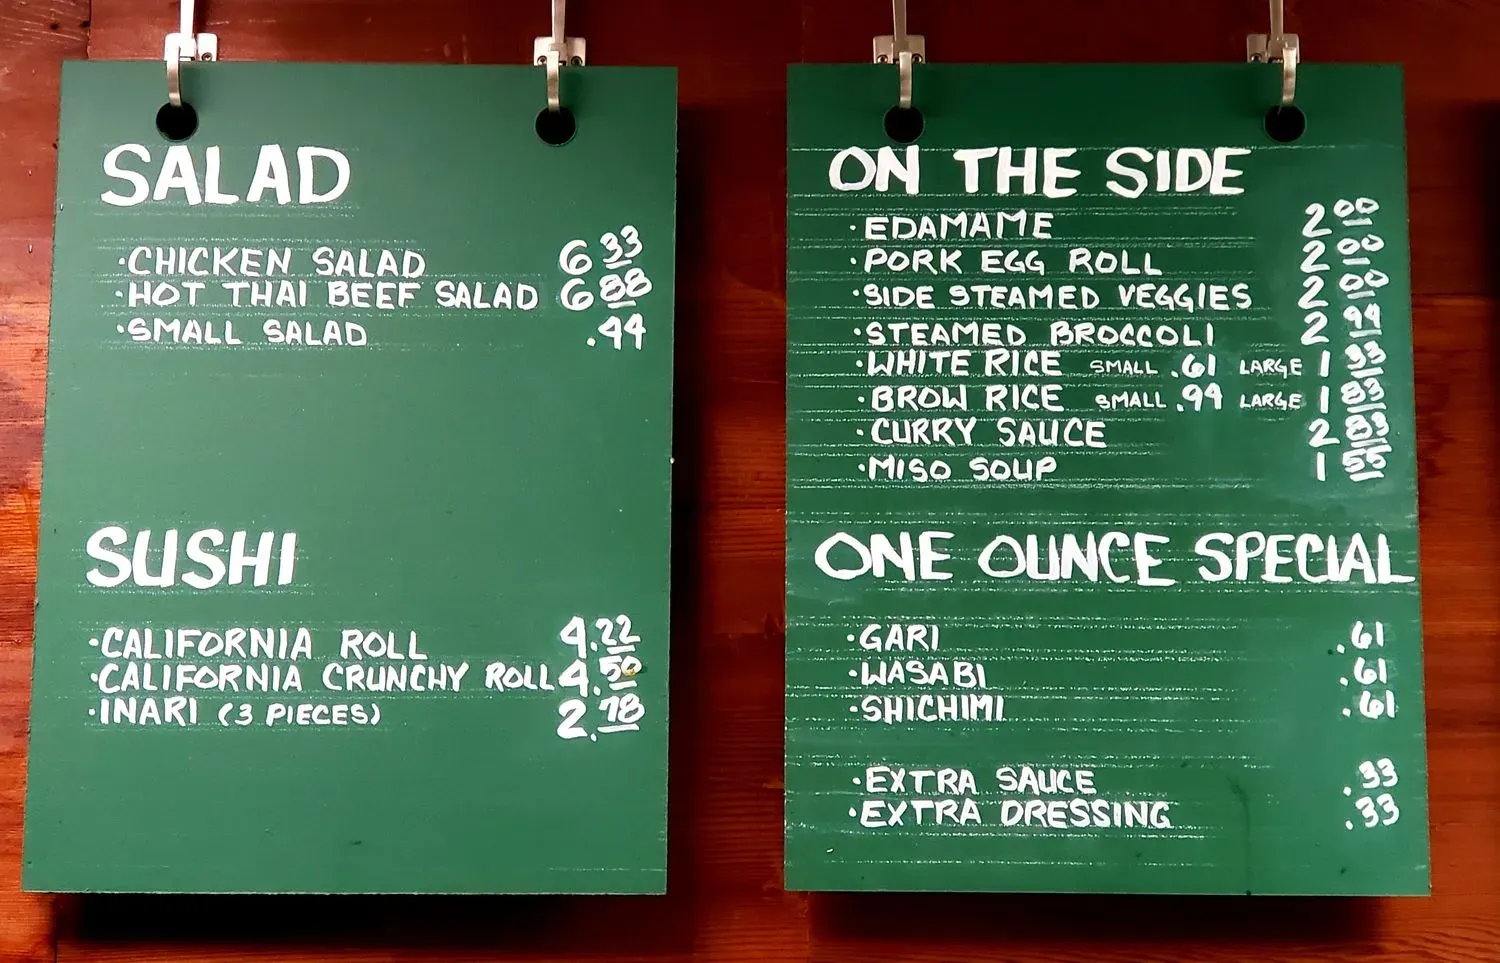 SALAD
·CHICKEN SALAD 6 33
·HOT THAI BEEF SALAD 6 88
·SMALL SALAD .44
SUSHI
·CALIFORNIA ROLL 4.22
·CALIFORNIA CRUNCHY ROLL 4.50
·INARI (3 PIECES) 2.78
ON THE SIDE
·EDAMAME 2 00
·PORK EGG ROLL 2 00
·SIDE STEAMED VEGGIES 2 00
·STEAMED BROCCOLI 2 94
·WHITE RICE SMALL .61 LARGE 1 33
·BROW RICE SMALL .94 LARGE 1 83
·CURRY SAUCE 2 83
·MISO SOUP 1 55
ONE OUNCE SPECIAL
·GARI .61
·WASABI .61
·SHICHIMI .61
·EXTRA SAUCE .33
·EXTRA DRESSING .33